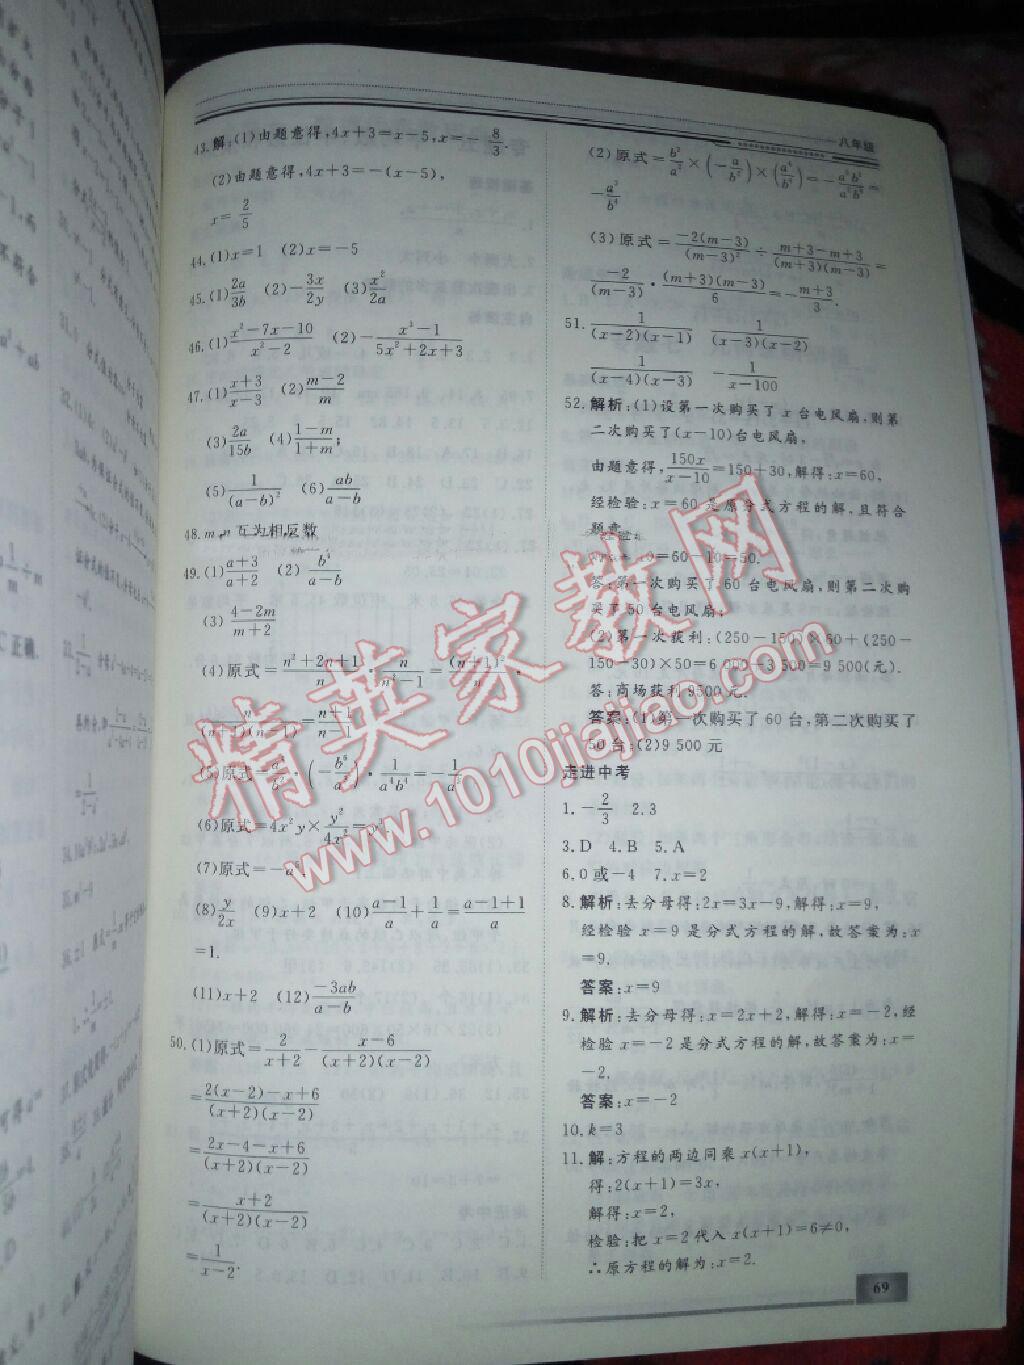 八年级
43.解:(1)由题意得,4x+3=x-5,x=-8/3.
(2)由题意得,4x+3=-(x-5),
x=2/5
44.(1)x=1 (2)x=-5
45.(1)2a/3b (2)-3x/2y (3)x²/2a
46.(1)(x²-7x-10)/(x²-2) (2)-(x³-1)/(5x²+2x+3)
47.(1)(x+3)/(x-3) (2)(m-2)/m
(3)2a/15b (4)(1-m)/(1+m);
(5)1/(a-b)² (6)ab/(a-b)
48.m,n互为相反数
49.(1)(a+3)/(a+2) (2)b²/(a-b)
(3)(4-2m)/(m+2)
(4)原式=(n²+2n+1)/n·n/(n²-1)=(n+1)²/n·
n/((n+1)(n-1))=(n+1)/(n-1)
(5)原式= ·(- )·1/(a⁴b⁴)=-
(6)原式=4x²y×y²/4x²=y³.
(7)原式=-a⁶.
(8)y/2x (9)x+2 (10)(a-1)/a+1/a=(a-1+1)/a
=1.
(11)x+2 (12)-3ab/(a-b)
50.(1)原式=2/(x+2)-(x-6)/((x+2)(x-2))
=(2(x-2)-x+6)/((x+2)(x-2))
=(2x-4-x+6)/((x+2)(x-2))
=(x+2)/((x+2)(x-2))
=1/(x-2).
(2)原式= × × =- =
(3)原式=-2(m-3)/(m-3)²÷(m+3-m+3)/((m+3)(m-3))=
-2/(m-3)·(m+3)(m-3)/6=-(m+3)/3.
51.1/((x-2)(x-1)) 1/((x-3)(x-2))
1/((x-4)(x-3)) -1/(x-100)
52.解析:(1)设第一次购买了x台电风扇,则第
二次购买了(x-10)台电风扇,
由题意得,150x/(x-10)=150+30,解得:x=60,
经检验:x=60是原分式方程的解,且符合
题意,
x-10=60-10=50.
答:第一次购买了60台电风扇,则第二次购
买了50台电风扇;
(2)第一次获利:(250-150)×60+(250-
150-30)×50=6000+3500=9500(元).
答:商场获利9500元.
答案:(1)第一次购买了60台,第二次购买了
50台;(2)9500元
走进中考
1.-2/3 2.3
3.D 4.B 5.A
6.0或-4 7.x=2
8.解析:去分母得:2x=3x-9,解得:x=9,
经检验x=9是分式方程的解,故答案为:x
=9.
答案:x=9
9.解析:去分母得:x=2x+2,解得:x=-2,经
检验x=-2是分式方程的解,故答案为:x=
-2.
答案:x=-2
10.k=3
11.解:方程的两边同乘x(x+1),
得:2(x+1)=3x,
解得:x=2,
检验:把x=2代入x(x+1)=6≠0,
∴原方程的解为:x=2.
69
精英家教网
www.1010jiajiao.com